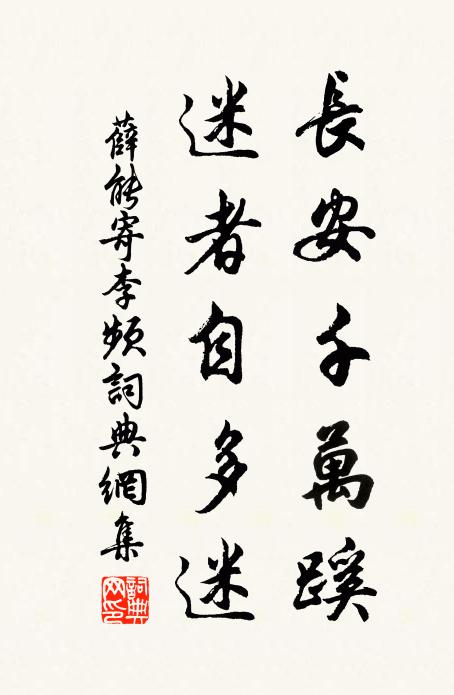 長安千萬蹊
迷者自多迷
薛能寄李頻詞典網集
詞典網印